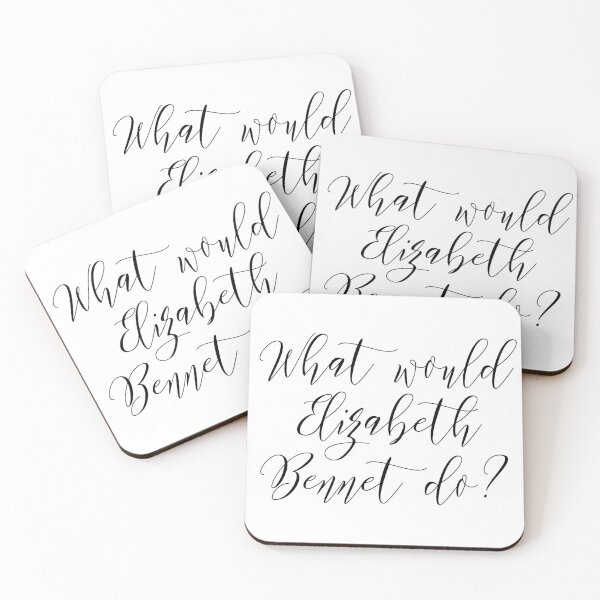 What would
Elizabeth
What would
Elizabeth
Bennet do?
What would
Elizabeth
Bennet
What would
Elizabeth
Bennet do?